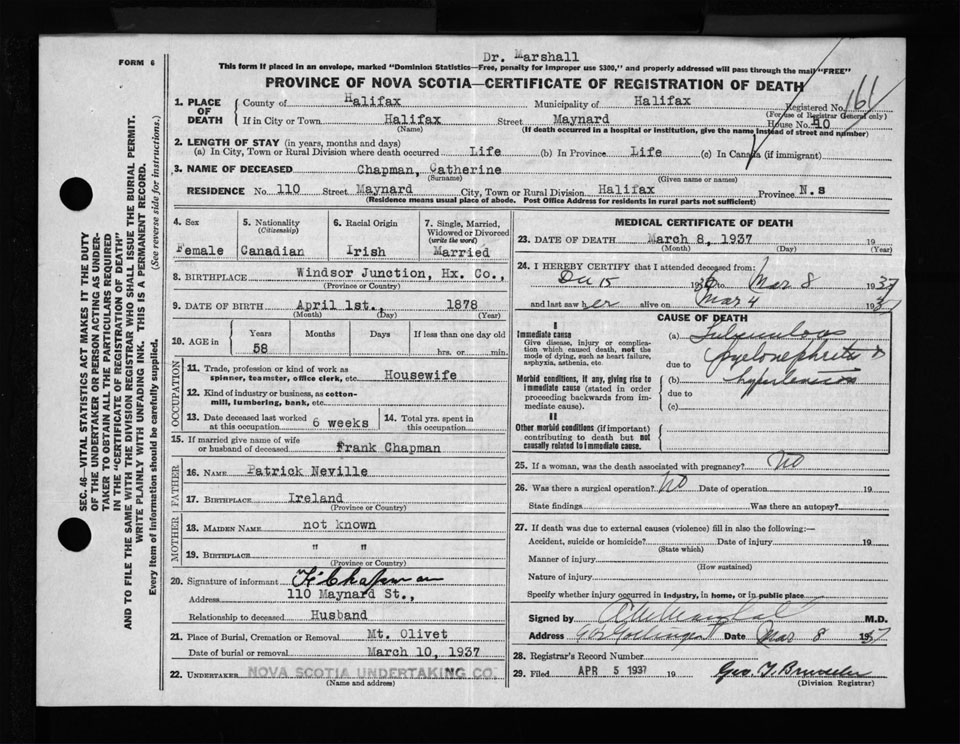 FORM 6
Dr. Marshall
This form if placed in an envelope, marked "Dominion Statistics—Free, penalty for improper use $300," and properly addressed will pass through the mail "FREE"
PROVINCE OF NOVA SCOTIA—CERTIFICATE OF REGISTRATION OF DEATH
SEC. 46—VITAL STATISTICS ACT MAKES IT THE DUTY
OF THE UNDERTAKER OR PERSON ACTING AS UNDER-
TAKER TO OBTAIN ALL THE PARTICULARS REQUIRED
IN THE "CERTIFICATE OF REGISTRATION OF DEATH"
AND TO FILE THE SAME WITH THE DIVISION REGISTRAR WHO SHALL ISSUE THE BURIAL PERMIT.
WRITE PLAINLY WITH UNFADING INK. THIS IS A PERMANENT RECORD.
Every item of information should be carefully supplied. (See reverse side for instructions.)
1. PLACE OF DEATH
County of Halifax Municipality of Halifax Registered No. 161
(For use of Registrar General only)
If in City or Town Halifax Street Maynard House No. 110
(Name) (If death occurred in a hospital or institution, give the name instead of street and number)
2. LENGTH OF STAY (in years, months and days)
(a) In City, Town or Rural Division where death occurred Life (b) In Province Life (c) In Canada (if immigrant)
3. NAME OF DECEASED Chapman, Catherine
(Surname) (Given name or names)
RESIDENCE No. 110 Street Maynard City, Town or Rural Division Halifax Province N.s
(Residence means usual place of abode. Post Office Address for residents in rural parts not sufficient)
4. Sex
Female
5. Nationality
(Citizenship)
Canadian
6. Racial Origin
Irish
7. Single, Married,
Widowed or Divorced
(write the word)
Married
8. BIRTHPLACE Windsor Junction, Hx. Co.,
(Province or Country)
9. DATE OF BIRTH April 1st., 1878
(Month) (Day) (Year)
10. AGE in
Years Months Days If less than one day old
58 hrs. or min.
OCCUPATION
11. Trade, profession or kind of work as
spinner, teamster, office clerk, etc. Housewife
12. Kind of industry or business, as cotton-
mill, lumbering, bank, etc.
13. Date deceased last worked
at this occupation 6 weeks
14. Total yrs. spent in
this occupation
15. If married give name of wife
or husband of deceased Frank Chapman
FATHER
16. NAME Patrick Neville
17. BIRTHPLACE Ireland
(Province or Country)
MOTHER
18. MAIDEN NAME not known
19. BIRTHPLACE " "
(Province or Country)
20. Signature of informant F. Chapman
Address 110 Maynard St.,
Relationship to deceased Husband
21. Place of Burial, Cremation or Removal Mt. Olivet
Date of burial or removal March 10, 1937
22. UNDERTAKER NOVA SCOTIA UNDERTAKING CO.
(Name and address)
MEDICAL CERTIFICATE OF DEATH
23. DATE OF DEATH March 8, 1937 19
(Month) (Day) (Year)
24. I HEREBY CERTIFY that I attended deceased from:
Dec 15 193 to Mar 8 1937
and last saw her alive on Mar 4 1937
CAUSE OF DEATH
I
Immediate cause
Give disease, injury or complica-
tion which caused death, not the
mode of dying, such as heart failure,
asphyxia, asthenia, etc.
(a)
due to pyelonephritis &
Morbid conditions, if any, giving rise to
immediate cause (stated in order
proceeding backwards from im-
mediate cause).
(b) hypertension
due to
(c)
II
Other morbid conditions (if important)
contributing to death but not
causally related to immediate cause.
25. If a woman, was the death associated with pregnancy? No
26. Was there a surgical operation? No Date of operation 19
State findings Was there an autopsy?
27. If death was due to external causes (violence) fill in also the following:—
Accident, suicide or homicide? Date of injury 19
(State which)
Manner of injury
(How sustained)
Nature of injury
Specify whether injury occurred in industry, in home, or in public place
Signed by M.D.
Address Gottingen Date Mar 8 1937
28. Registrar's Record Number
29. Filed APR 5 1937 19
(Division Registrar)